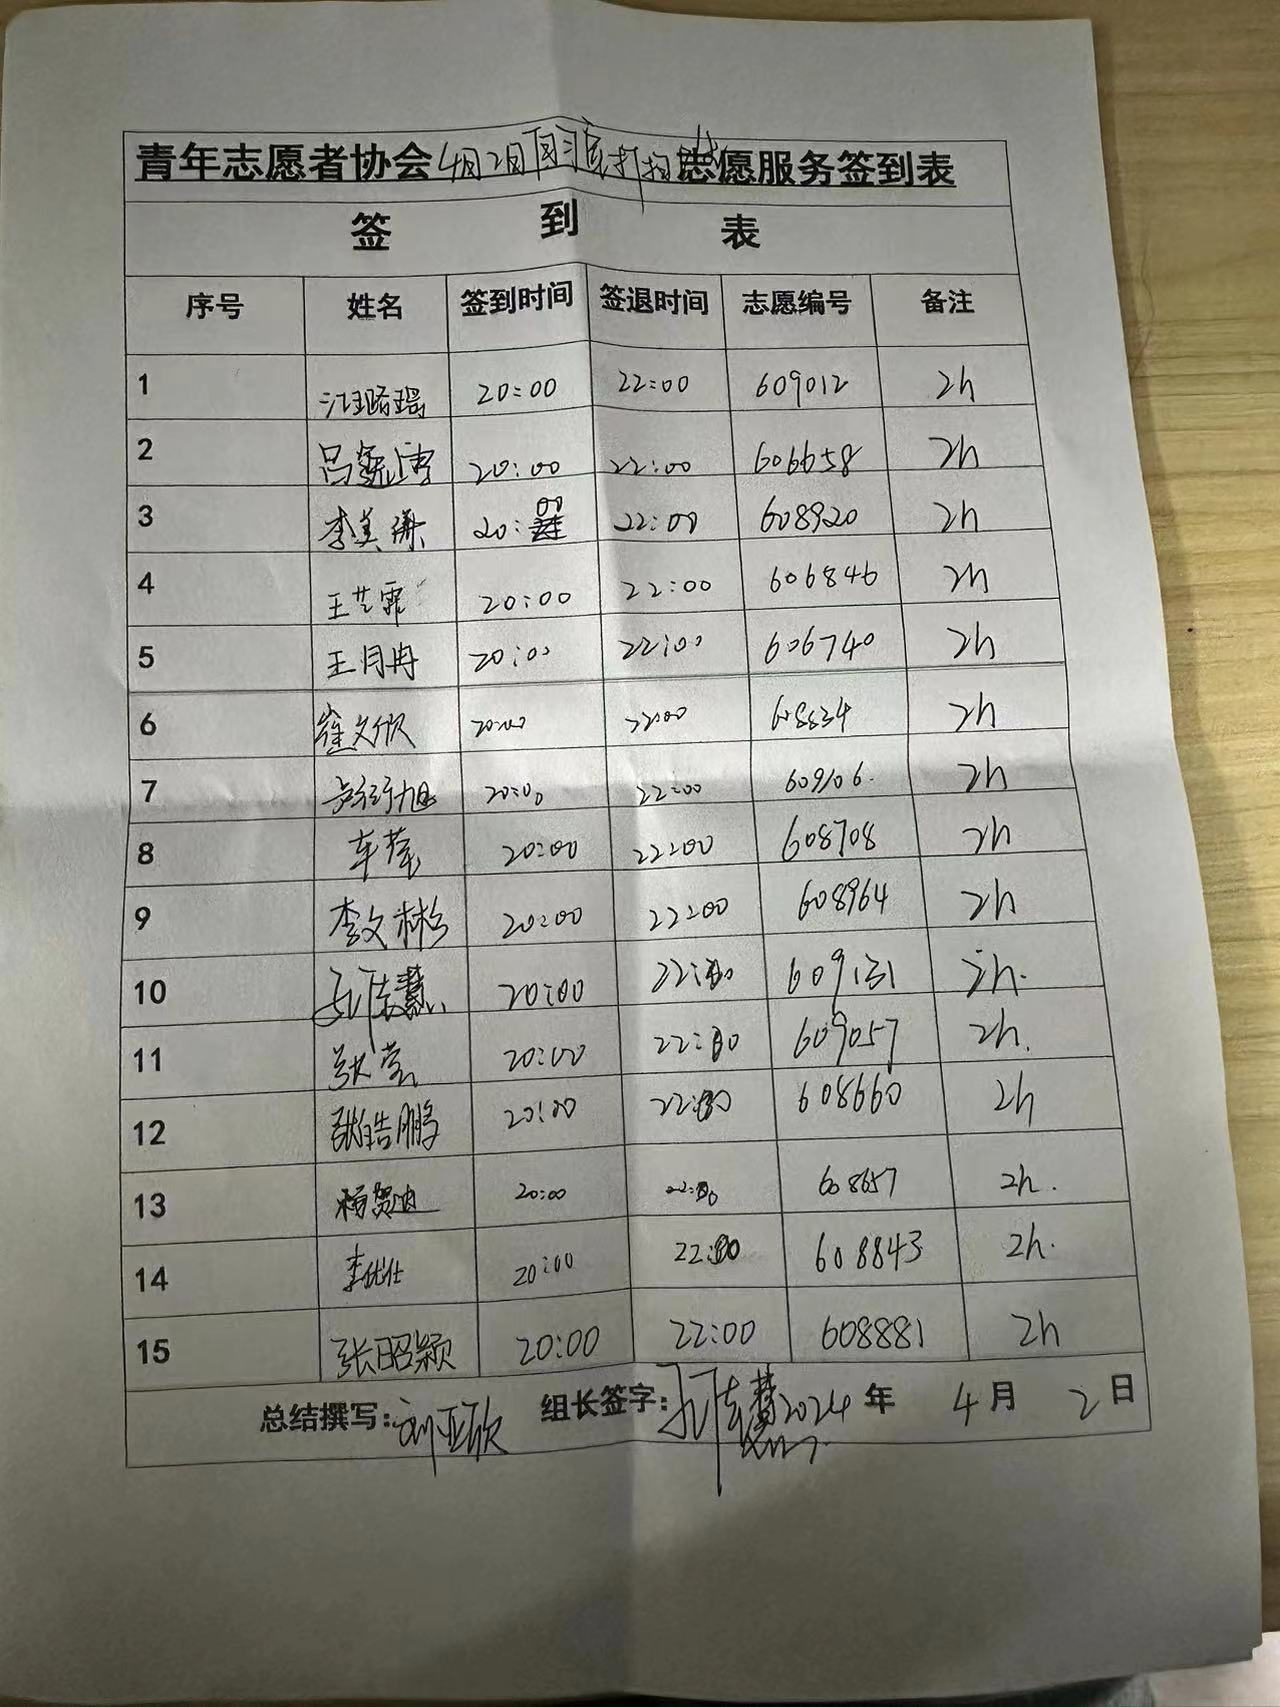 青年志愿者协会4月2日图书馆打扫志愿服务签到表
签 到 表
序号 姓名 签到时间 签退时间 志愿编号 备注
1 20:00 22:00 609012 2h
2 吕 20:00 22:00 606658 2h
3 李美 20:00 22:00 608920 2h
4 王艺霏 20:00 22:00 606846 2h
5 王月冉 20:00 22:00 606740 2h
6 崔文欣 20:00 22:00 608834 2h
7 20:00 22:00 609106 2h
8 车莹 20:00 22:00 608708 2h
9 李文彬 20:00 22:00 608964 2h
10 孔志慧 20:00 22:00 609131 2h.
11 张莹 20:00 22:00 609057 2h.
12 张皓鹏 20:00 22:00 608660 2h
13 杨贺迪 20:00 22:00 608657 2h.
14 李优仕 20:00 22:00 608843 2h.
15 张昭颖 20:00 22:00 608881 2h
总结撰写:刘亚欣 组长签字:孔志慧 2024年 4月 2日